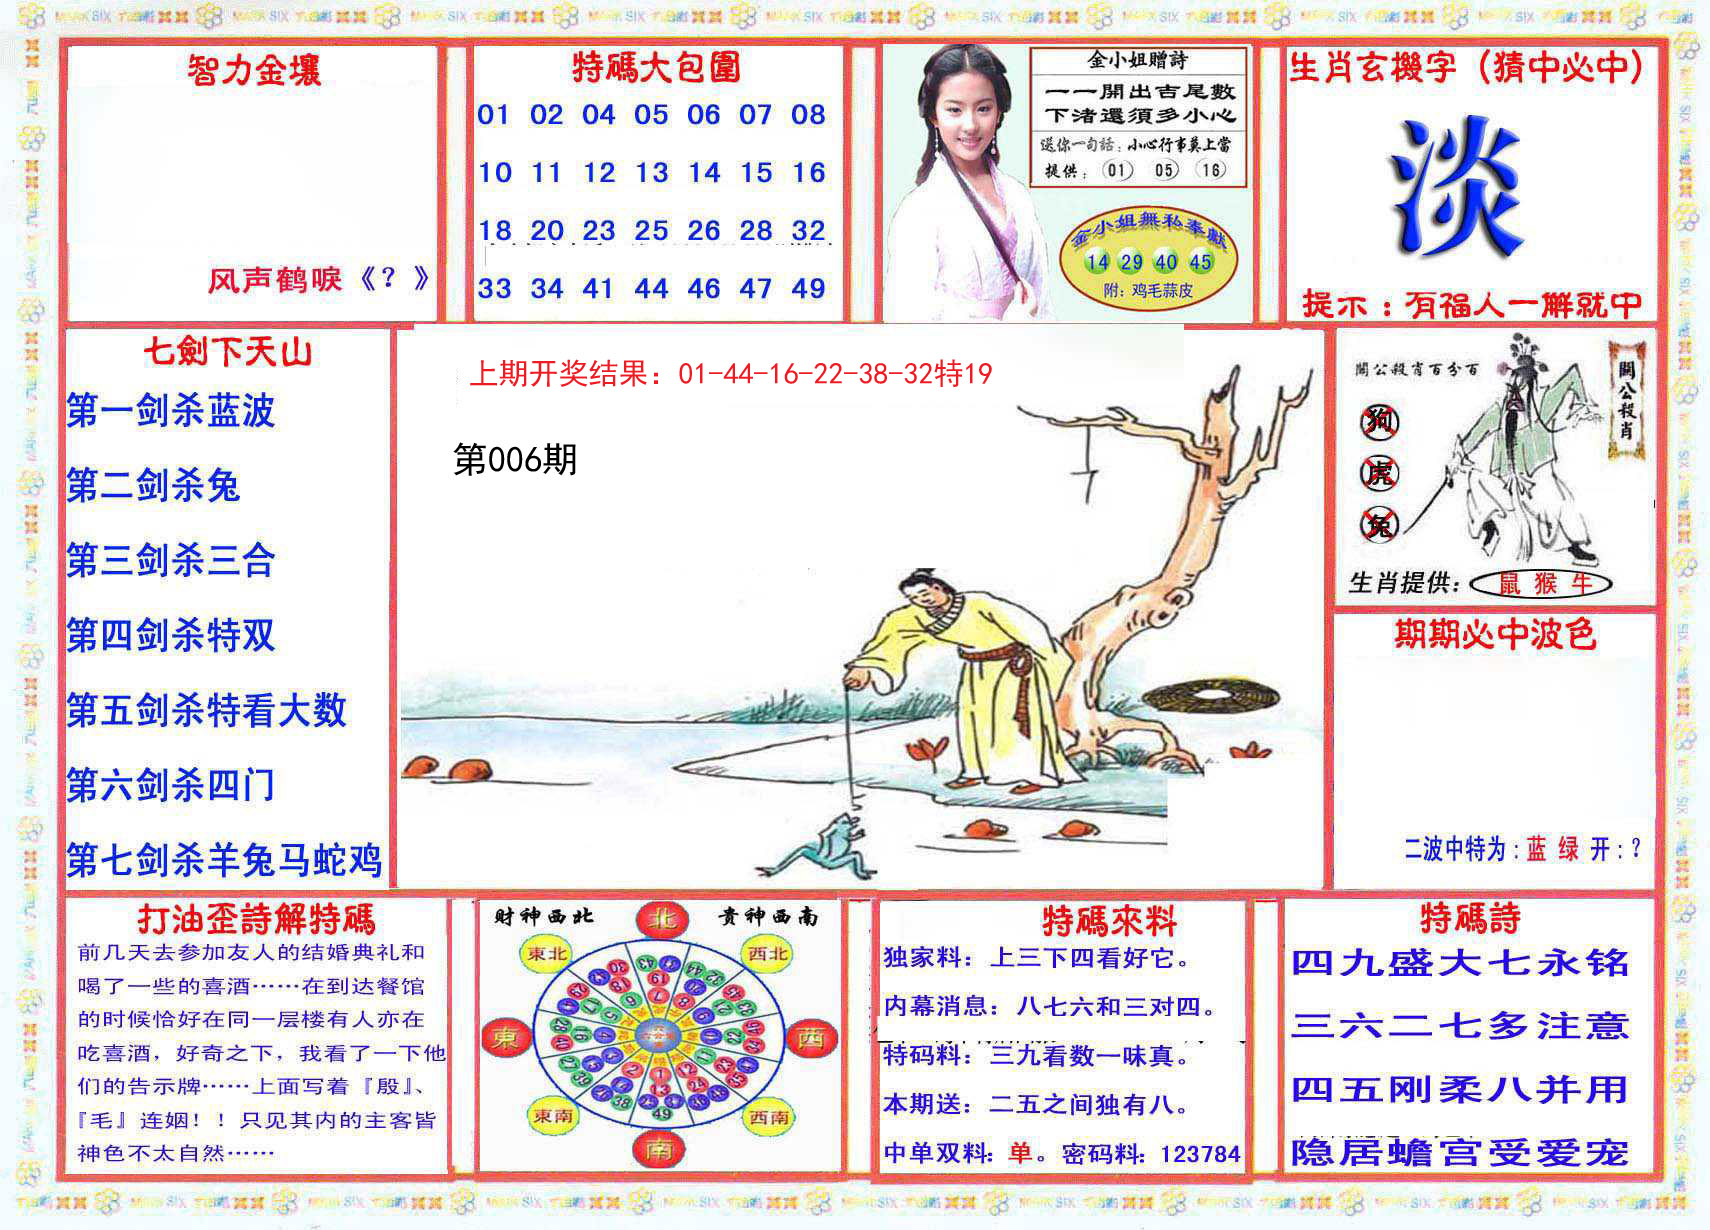 智力金壤
风声鹤唳《？》
特碼大包圍
01 02 04 05 06 07 08
10 11 12 13 14 15 16
18 20 23 25 26 28 32
33 34 41 44 46 47 49
金小姐贈詩
一一開出吉尾數
下渚還須多小心
送你一句話：小心行事莫上當
提供：01 05 16
金小姐無私奉獻
14 29 40 45
附：鸡毛蒜皮
生肖玄機字（猜中必中）
淡
提示：有福人一解就中
七劍下天山
第一剑杀蓝波
第二剑杀兔
第三剑杀三合
第四剑杀特双
第五剑杀特看大数
第六剑杀四门
第七剑杀羊兔马蛇鸡
上期开奖结果：01-44-16-22-38-32特19
第006期
關公殺肖百分百
關公殺肖
狗
虎
兔
生肖提供：鼠 猴 牛
期期必中波色
二波中特为：蓝 绿 开：？
打油歪詩解特碼
前几天去参加友人的结婚典礼和
喝了一些的喜酒……在到达餐馆
的时候恰好在同一层楼有人亦在
吃喜酒，好奇之下，我看了一下他
们的告示牌……上面写着『殷』、
『毛』连姻！！只见其内的主客皆
神色不太自然……
財神西北
北
貴神西南
東北
西北
東
西
東南
西南
南
特碼來料
独家料：上三下四看好它。
内幕消息：八七六和三对四。
特码料：三九看数一味真。
本期送：二五之间独有八。
中单双料：单。密码料：123784
特碼詩
四九盛大七永铭
三六二七多注意
四五刚柔八并用
隐居蟾宫受爱宠